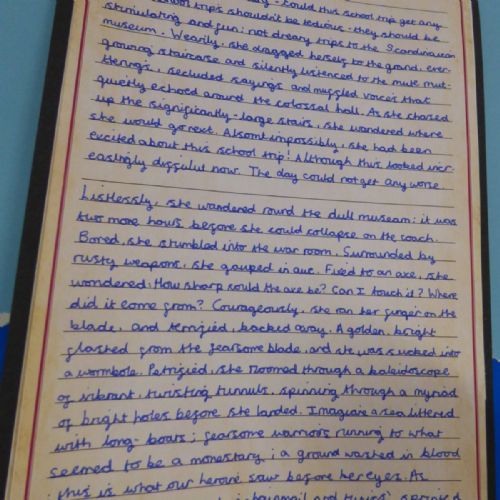 could this school trip get any
school trips shouldn't be tedious - they should be
stimulating and fun; not dreary trips to the Scandinavian
museum. Wearily, she dragged herself to the grand, ever-
growing staircase and silently listened to the mute mut-
terings, secluded sayings and muggled voices that
quietly echoed around the colossal hall. As she chased
up the significantly-large stairs, she wandered where
she would go next. Alsomt impossibly, she had been
excited about this school trip! Although this looked incr-
easingly doubtful now. The day could not get any worse.
Listlessly, she wandered round the dull museam: it was
two more hours before she could collapse on the coach.
Bored, she stumbled into the war room. Surrounded by
rusty weapons, she gauped in awe. Fixed to an axe, she
wondered: How sharp could the axe be? Can I touch it? Where
did it come from? Courageously, she ran her finger on the
blade, and terrified, backed away. A golden, bright
flashed from the fearsome blade, and she was sucked into
a wormhole. Petrified, she roomed through a kaleidoscope
of vibrant, twisting tunnuls, spinning through a myriad
of bright holes before she landed. Imagine a sea littered
with long-boats; fearsome warriors running to what
seemed to be a monestary; a ground washed in blood
this is what our heroine saw before her eyes. As
chainmail and tunics